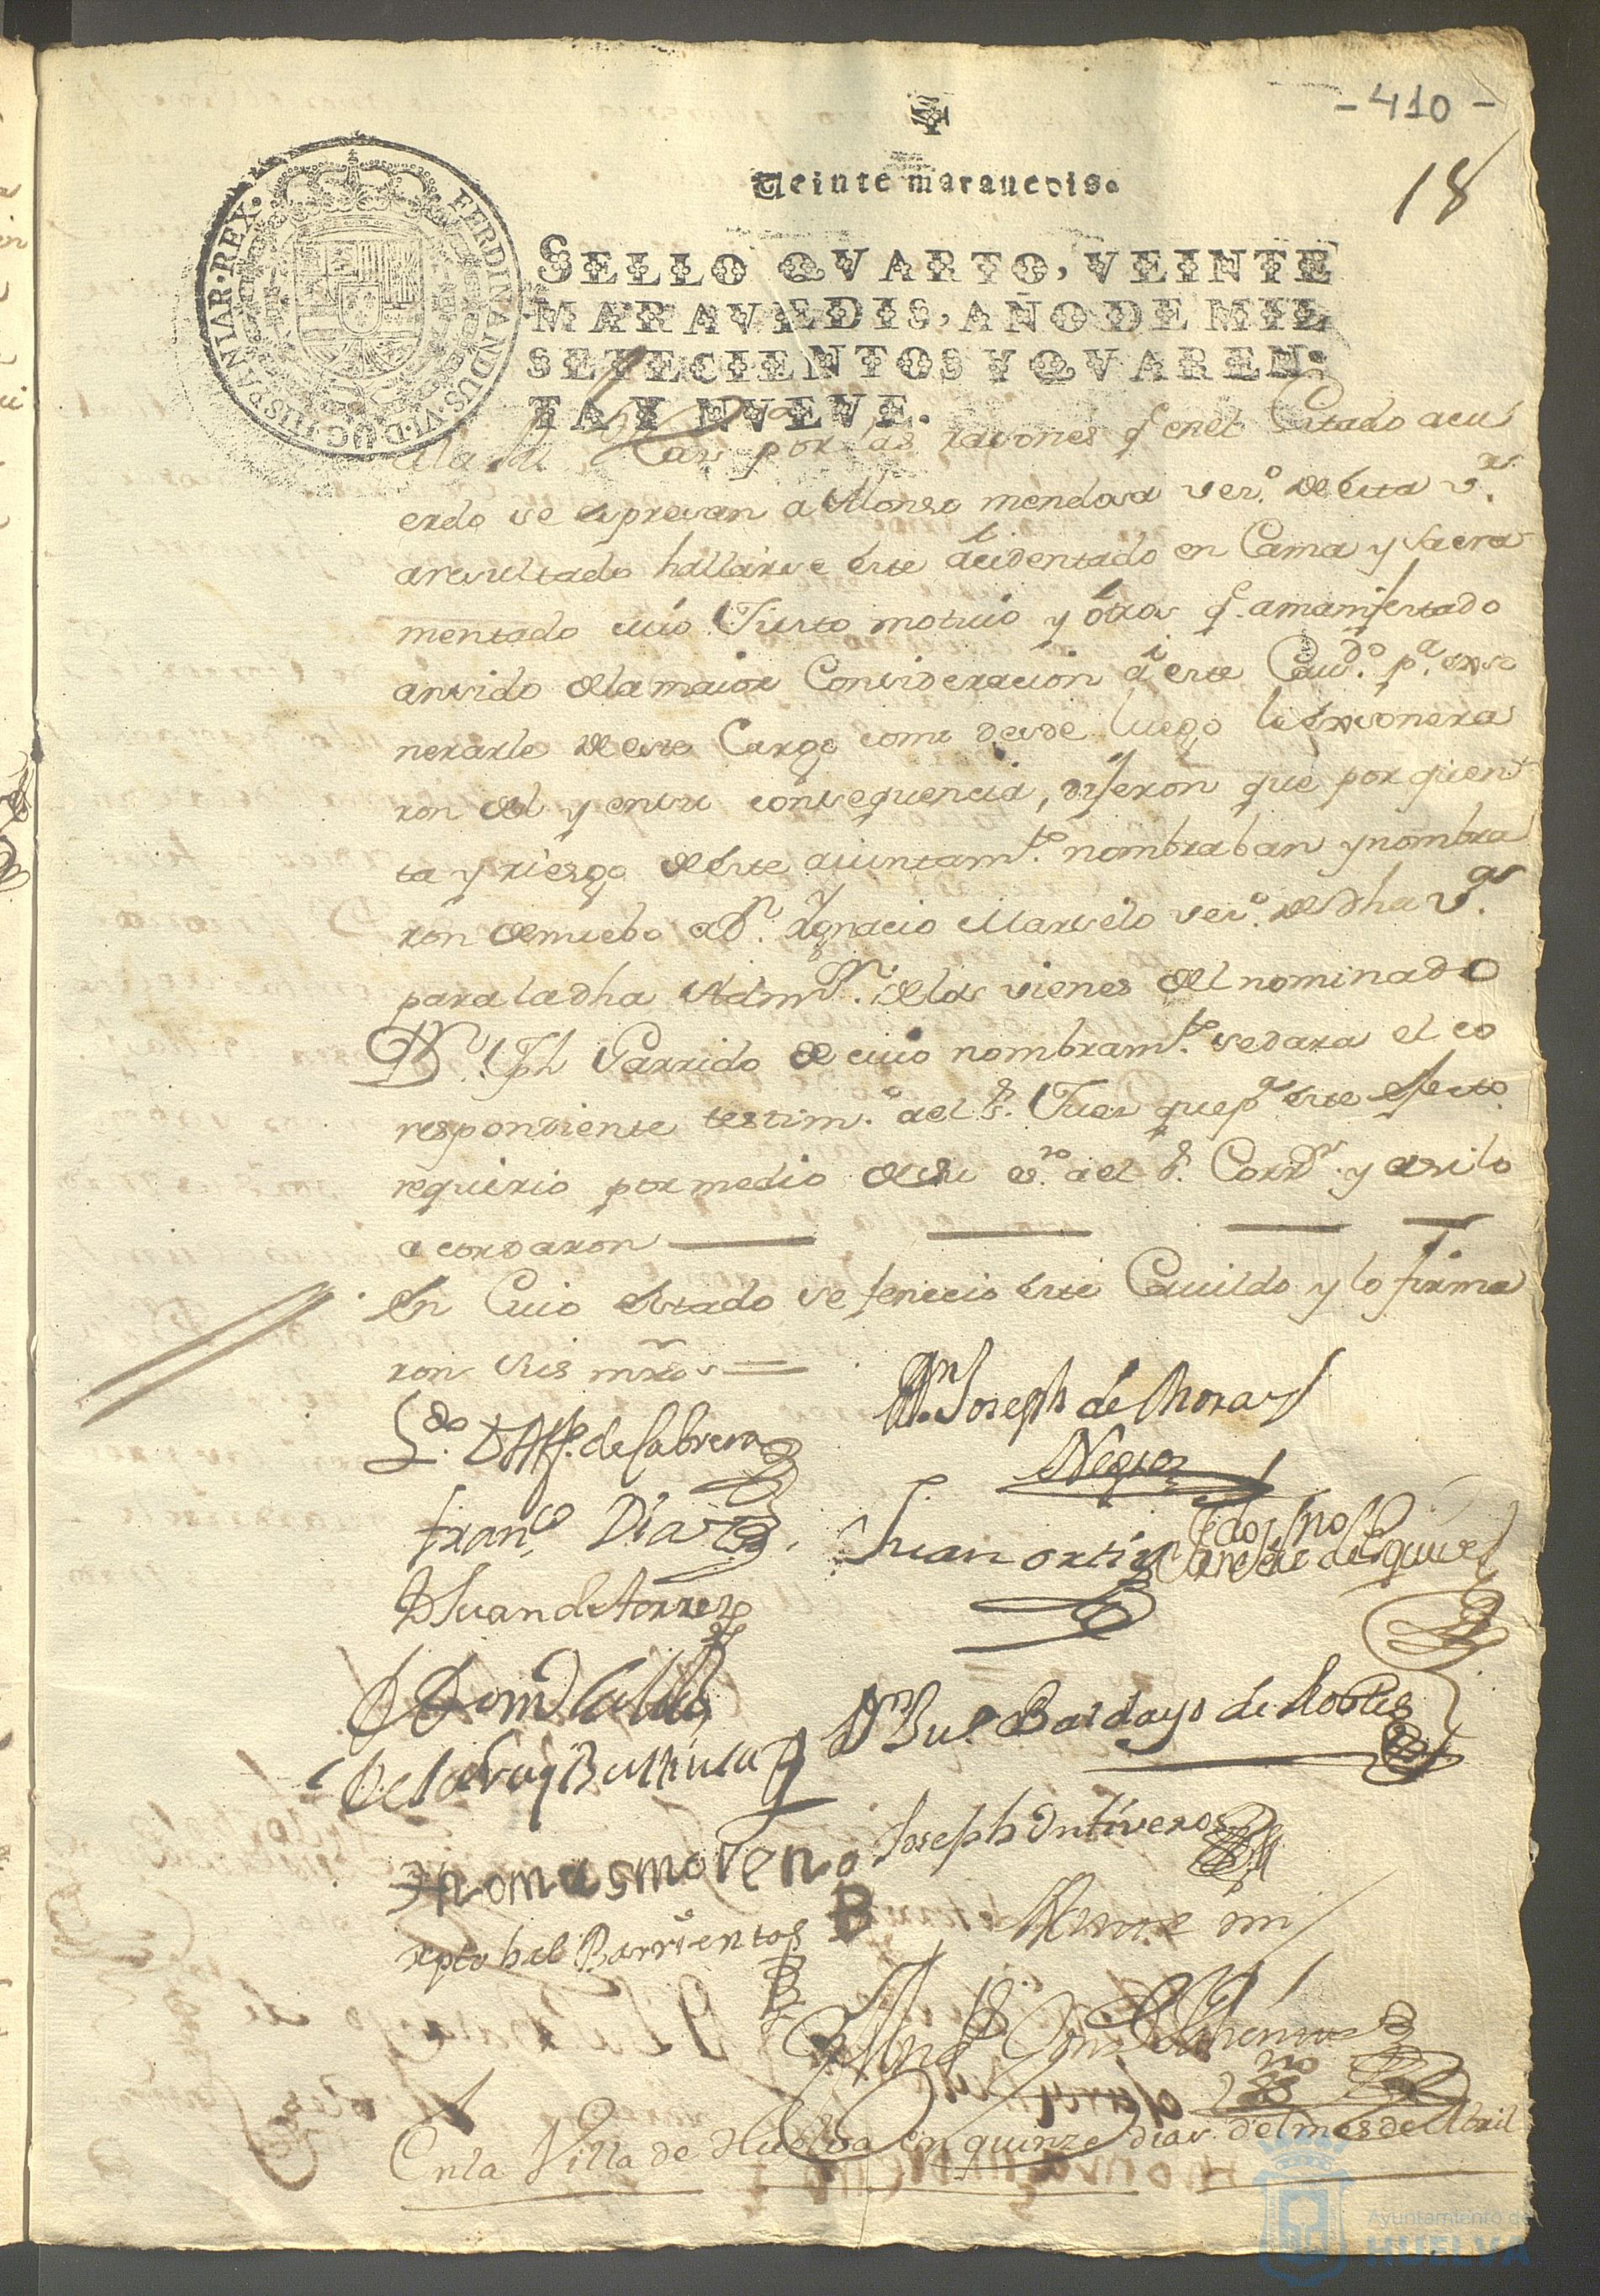 - 410 -
18
Veinte marauedis.
SELLO QVARTO, VEINTE
MARAVEDIS, AÑO DE MIL
SETECIENTOS Y QVAREN-
TA Y NVEVE.
FERDINANDUS·VI·D·G·HISPANIAR·REX·
por las rasones q̃ en el Citado acu
erdo se espresan a Alonso mendosa vez.º de esta v.ª
aresultado hallarse este acidentado en Cama y sacra
mentado cuio Justo motiuo y otros q.e amanifestado
ansido de la maior Consideracion a este Cau.do p.a exso
nerarle de este Cargo como desde luego le exsonera
ron del y ensu consequencia, dijeron que por quen
ta y riesgo de este aiuntam.to nombraban y nombra
ron de nuebo a D.n Ygnacio Marselo vez.º de dha v.ª
para la dha Adm.on de los vienes del nominado
D.n Jph Garrido de cuio nombram.to se dara el co
respondiente testim.º a el S.r Juez que p.a este efecto
requirio por medio de su es.no a el S.r Corr.or y asi lo
acordaron
En Cuio estado se fenecio este Cauildo y lo firma
ron Sus mrds
L.do D Alf. de Cabrera
D.n Joseph de Mora
Negro
Fran.co Dias
Juan ortiz
D Juan de torres
D Dom
D.n Bu.e Bardayo de Robles
Thomas moreno
Joseph Ontiveros
xptobal Barrientos
B
Ante mi
En la Villa de Huelva en quinze dias del mes de Abril
Ayuntamiento de
HUELVA